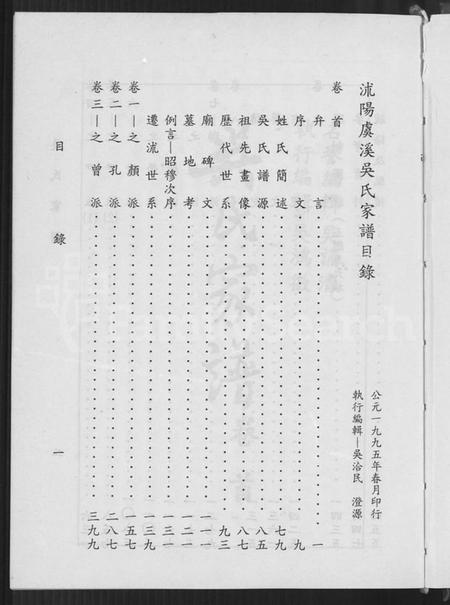 沭陽虞溪吳氏家譜目錄
公元一九九五年春月印行
執行編輯—吳洽民 澄源
卷首
弁言 一
序文 九
姓氏簡述 七九
吳氏譜源 八五
祖先畫像 八七
歷代世系 九三
廟碑文 一一一
墓地考 一二一
例言—昭穆次序 一三一
遷流世系 一三九
卷一—之顏派 一五七
卷二—之孔派 二八七
卷三—之曾派 三九九
目錄
一
FamilySearch